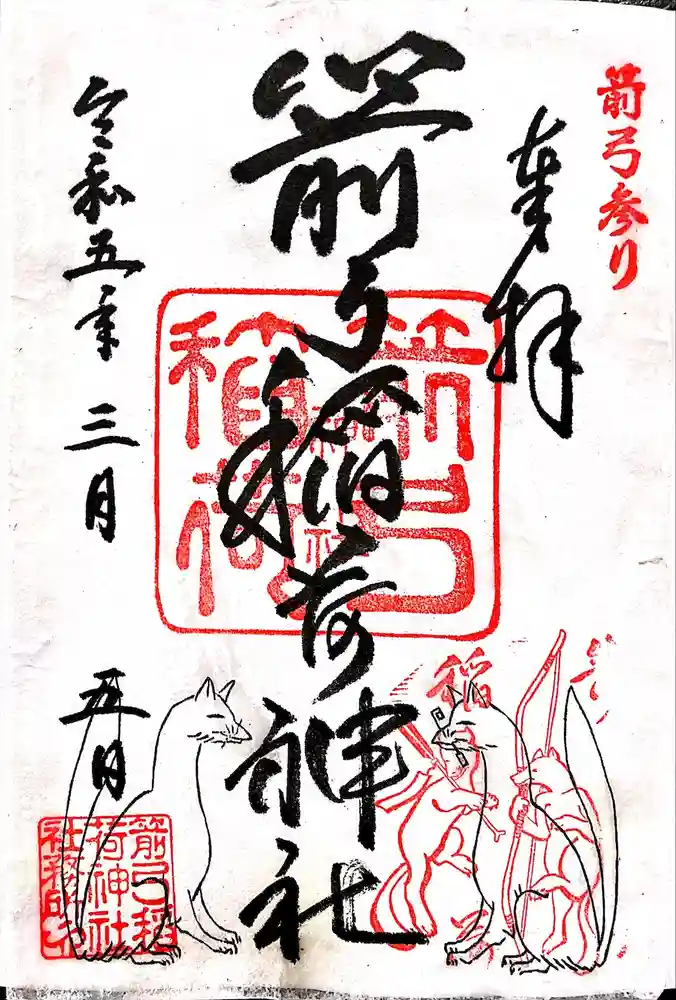 箭弓参り
奉拝
箭弓稲荷神社
箭弓
稲荷
神社
令和五年三月
五日
箭弓稲
荷神社
社務所
稲